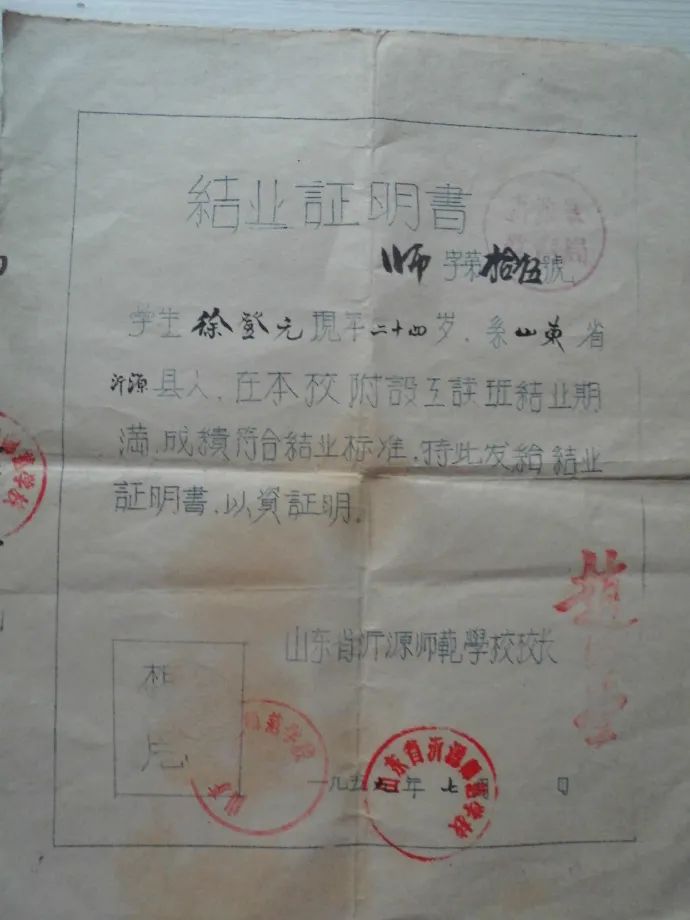 結业証明書
师字第拾伍號
学生徐登元現年二十四岁，系山东省
沂源县人，在本校附設互読班結业期
満，成績符合結业标准，特此发給結业
証明書，以資証明。
山东省沂源师範學校校长
趙
相
片
一九五 年七月 日
山东省沂源師範学校
学校